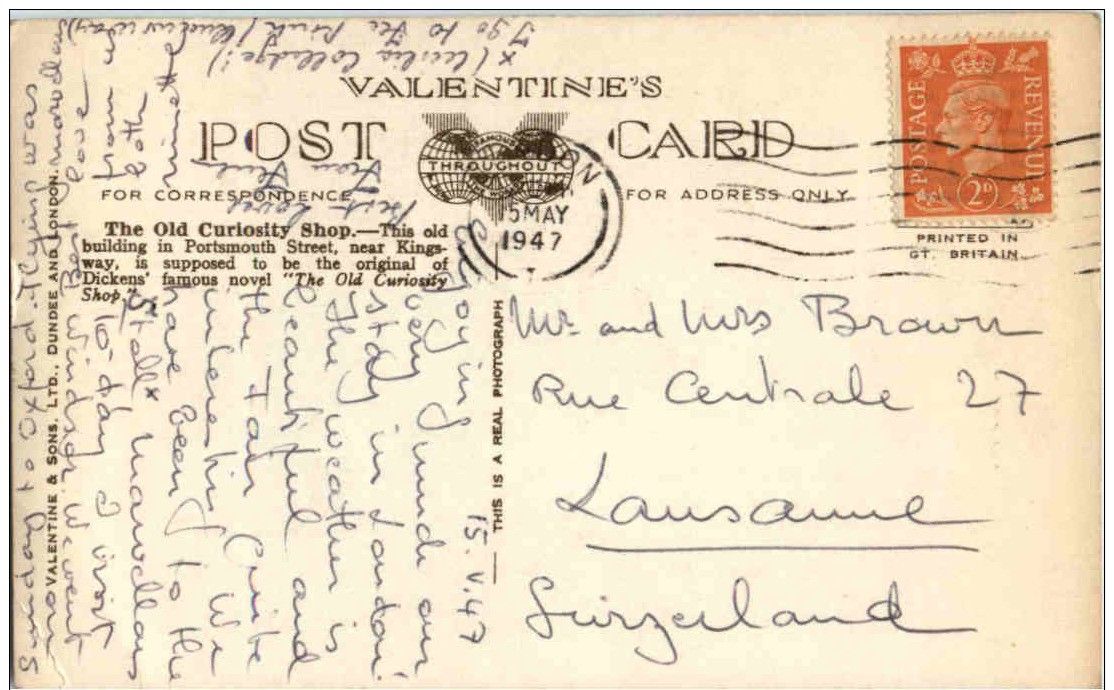 VALENTINE'S
POST CARD
THROUGHOUT
FOR CORRESPONDENCE
FOR ADDRESS ONLY
The Old Curiosity Shop.—This old
building in Portsmouth Street, near Kings-
way, is supposed to be the original of
Dickens' famous novel "The Old Curiosity
Shop."
POSTAGE
REVENUE
2D
PRINTED IN
GT. BRITAIN
5 MAY
1947
Mr and Mrs Brown
Rue Centrale 27
Lausanne
Switzerland
THIS IS A REAL PHOTOGRAPH
VALENTINE & SONS, LTD., DUNDEE AND LONDON.
15.V.47
Enjoying much our
very
stay in London.
The weather is
beautiful and
the Fair quite
interesting. We
have been to the
Stoll* Marvellous
To-day I visit
Windsor. We went
Sunday to Oxford. Flying was
marvellous
Best love
from
both
* (Cecilia Colledge!)
I go to
Best love
from